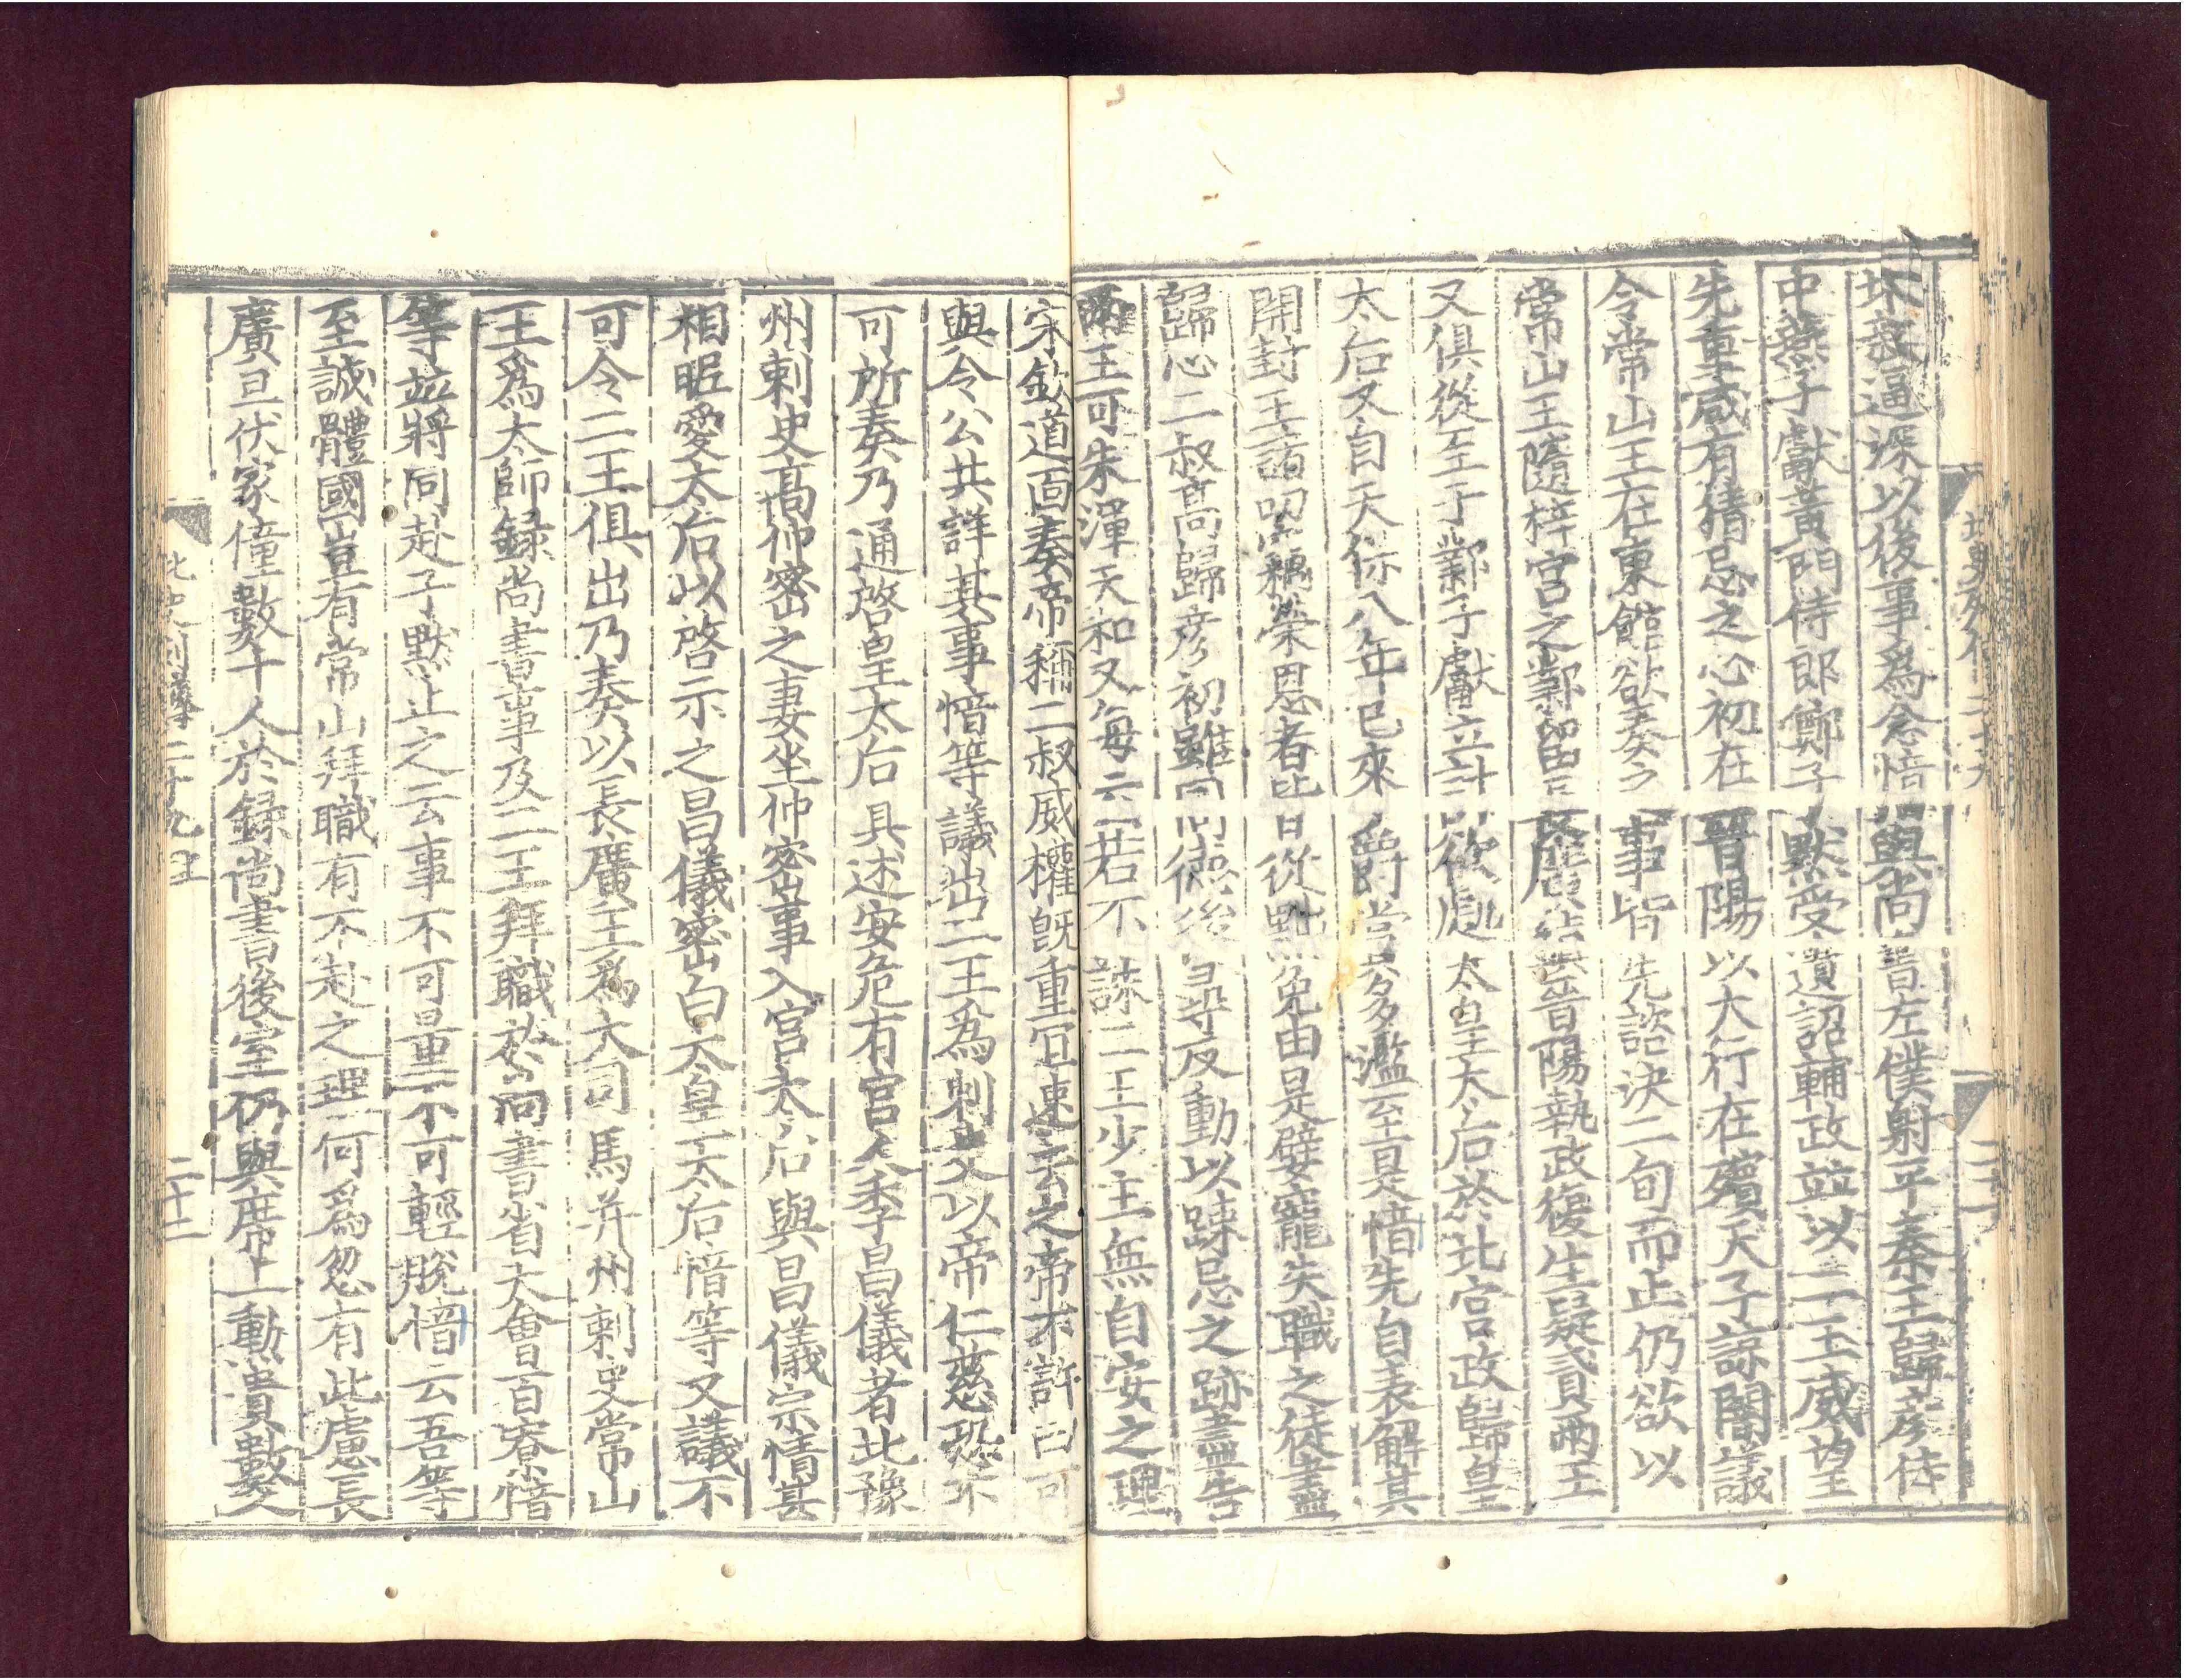 北史列傳二十九
二十一
坏衰逼深以後事爲念愔與尚書左僕射平秦王歸彦侍
中燕子獻黃門侍郎鄭子默受遺詔輔政並以二王威望
先重咸有猜忌之心初在晉陽以大行在殯天子諒闇議
令常山王在東館欲奏之事皆先諮決二旬而止仍欲以
常山王隨梓宮之鄴留長廣鎮晉陽執政復生疑貳兩王
又俱從至于鄴子獻立計欲處太皇太后於北宮政歸皇
太后又自天保八年已來爵賞多濫至是愔先自表解其
開封王諸叨竊榮恩者皆從黜免由是嬖寵失職之徒盡
歸心二叔高歸彦初雖同德後尋反動以疎忌之跡盡告
兩王可朱渾天和又每云若不誅二王少主無自安之理
宋欽道面奏帝稱二叔威權旣重宜速去之帝不許曰可
與令公共詳其事愔等議出二王爲刺史以帝仁慈恐不
可所奏乃通啓皇太后具述安危有宮人李昌儀者北豫
州刺史高仲密之妻坐仲密事入宮太后與昌儀宗情甚
相昵愛太后以啓示之昌儀密白太皇太后愔等又議不
可令二王俱出乃奏以長廣王爲大司馬并州刺史常山
王爲太師録尚書事及二王拜職於尚書省大會百寮愔
等並將同赴子默止之云事不可量不可輕脫愔云吾等
至誠體國豈有常山拜職有不赴之理何爲忽有此慮長
廣旦伏家僮數十人於録尚書後室仍與席上勳貴數人
北史列傳二十九
二十二